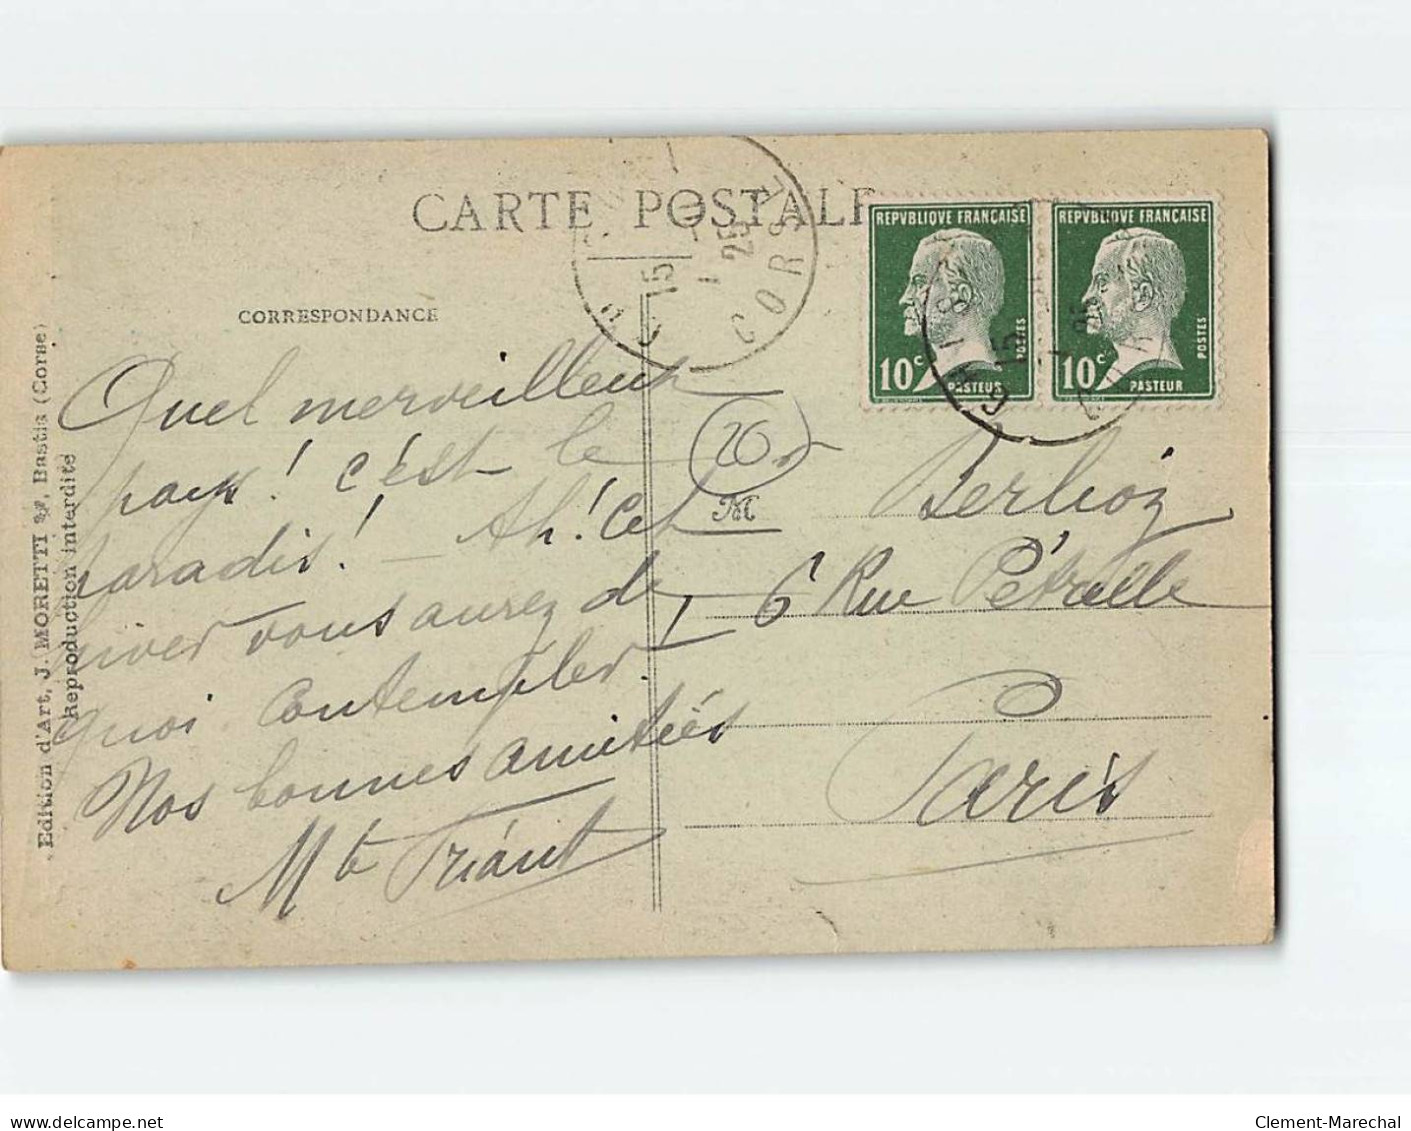 CARTE POSTALE
CORRESPONDANCE
CORSE
15
25
REPVBLIQVE FRANÇAISE
POSTES
10c
PASTEUR
REPVBLIQVE FRANÇAISE
POSTES
10c
PASTEUR
15
Edition d'Art, J. MORETTI, Bastia (Corse)
Reproduction interdite
Quel merveilleux
pays! c'est le
paradis! - Ah! Cet
hiver vous aurez de
quoi contempler.
Nos bonnes amitiés
Mt Triant
20
M Berlioz
6 Rue Pétrelle
Paris
delcampe.net
Clement-Marechal